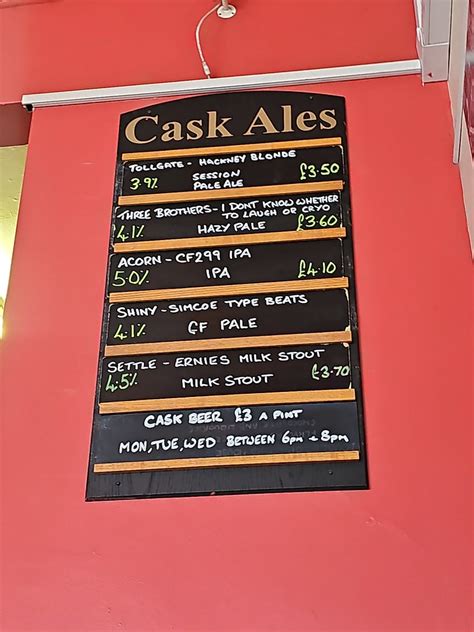 Cask Ales
TOLLGATE - HACKNEY BLONDE
3.9% SESSION £3.50
PALE ALE
THREE BROTHERS - I DONT KNOW WHETHER
TO LAUGH OR CRYO
4.1% HAZY PALE £3.60
ACORN - CF299 IPA
5.0% IPA £4.10
SHINY - SIMCOE TYPE BEATS
4.1% GF PALE
SETTLE - ERNIES MILK STOUT
4.5% MILK STOUT £3.70
CASK BEER £3 A PINT
MON, TUE, WED BETWEEN 6pm + 8pm